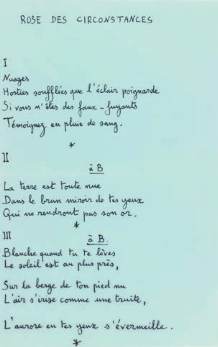 ROSE DES CIRCONSTANCES
I
Nuages
Hosties soufflées que l'éclair poignarde
Si vous n'êtes des faux-fuyants
Témoignez en pluie de sang.
*
II
à B
La terre est toute nue
Dans le brun miroir de tes yeux
Qui ne rendront pas son or.
*
III
à B.
Blanche quand tu te lèves
Le soleil est au plus près,
Sur la berge de ton pied nu
L'air s'irise comme une truite,
L'aurore en tes yeux s'évermeille.
*